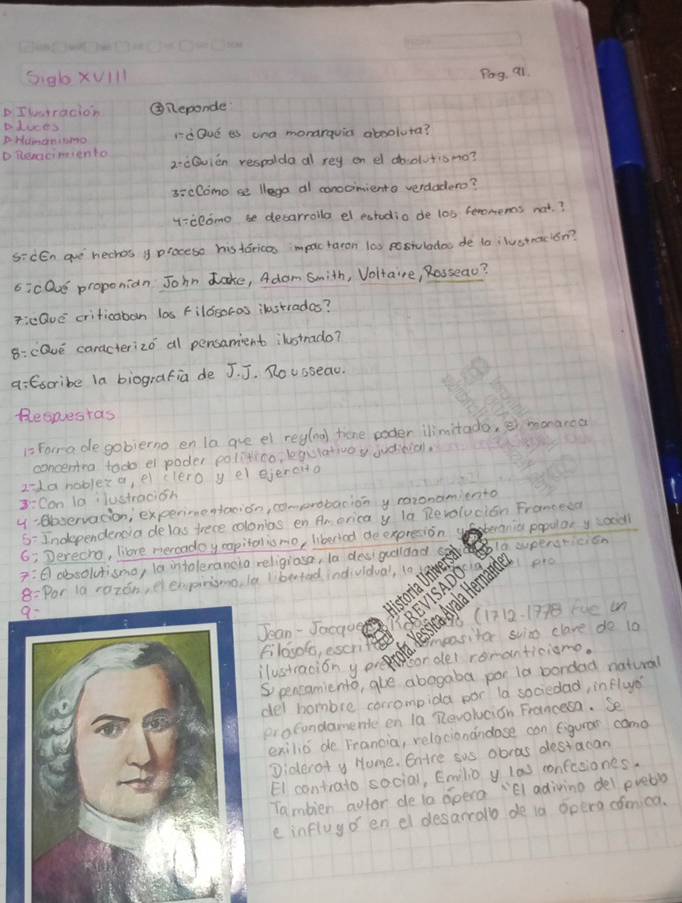 Siglo XVIII
Pag. 91.
Ilustración
Luces
Humanismo
Renacimiento
③ Reponde:
1-¿Qué es una monarquia absoluta?
2-¿Quién respalda al rey en el absolutismo?
3-¿Cómo se llega al conocimiento verdadero?
4-¿Cómo se desarrolla el estudio de los fenomenos nat.?
5-¿En qué hechos y proceso históricos impactaron los postulados de la ilustración?
6-¿Qué proponían John Locke, Adam Smith, Voltaire, Rosseau?
7-¿Qué criticaban los filósofos ilustrados?
8-¿Qué caracterizó al pensamiento ilustrado?
9-Escribe la biografía de J.J. Rousseau.
Respuestas
1-Forma de gobierno en la que el rey(na) tiene poder ilimitado, el monarca
concentra todo el poder político, legislativo y judicial.
2-La nobleza, el clero y el ejercito
3-Con la ilustración
4-Observación, experimentación, comprobación y razonamiento
5-Independencia de las trece colonias en America y la Revolución Francesa
6-Derecho, libre mercado y capitalismo, libertad de expresión y soberanía popular y social
7-El absolutismo, la intolerancia religiosa, la desigualdad la superstición
8-Por la razón, el empirismo, la libertad individual, la
9-
Historia Universal
REVISADO
Profa. Yessica Ayala Hernandez
Jean-Jacques (1712-1778 fue un
filósofo, escritor compositor suizo clave de la
ilustración y precursor del romanticismo.
S pensamiento, que abogaba por la bondad natural
del hombre corrompida por la sociedad, influyó
profundamente en la Revolución Francesa. Se
exilió de Francia, relacionándose con figuras como
Diderot y Hume. Entre sus obras destacan
El contrato social, Emilio y las confesiones.
Tambien autor de la ópera "El adivino del pueblo
e influyó en el desarrollo de la ópera cómica.